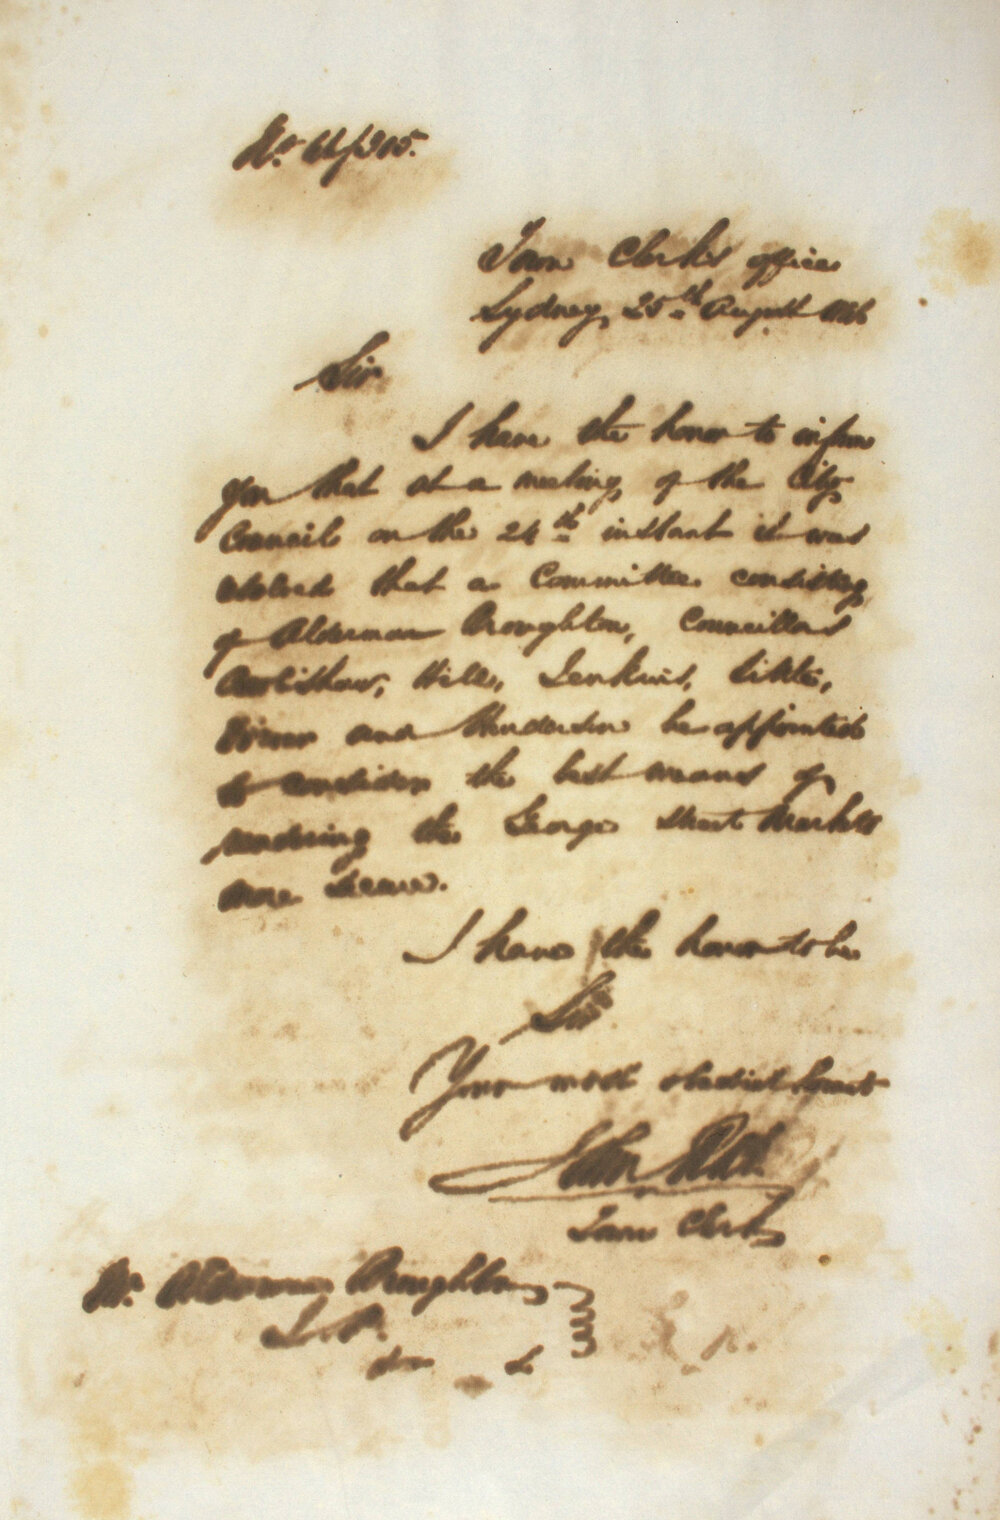 No.
Town Clerk's office
Sydney, 25th August
Sir
I have the honor to inform
you that at a meeting of the City
Council on the 24th instant it was
resolved that a Committee consisting
of Alderman Broughton, Councillors
Hill, Jenkins,
and Henderson be appointed
to consider the best means of
rendering the George Street Markets
more secure.
I have the honor to be
Sir
Your most obedient Servant
John
Town Clerk
Mr. Alderman Broughton
J.P.